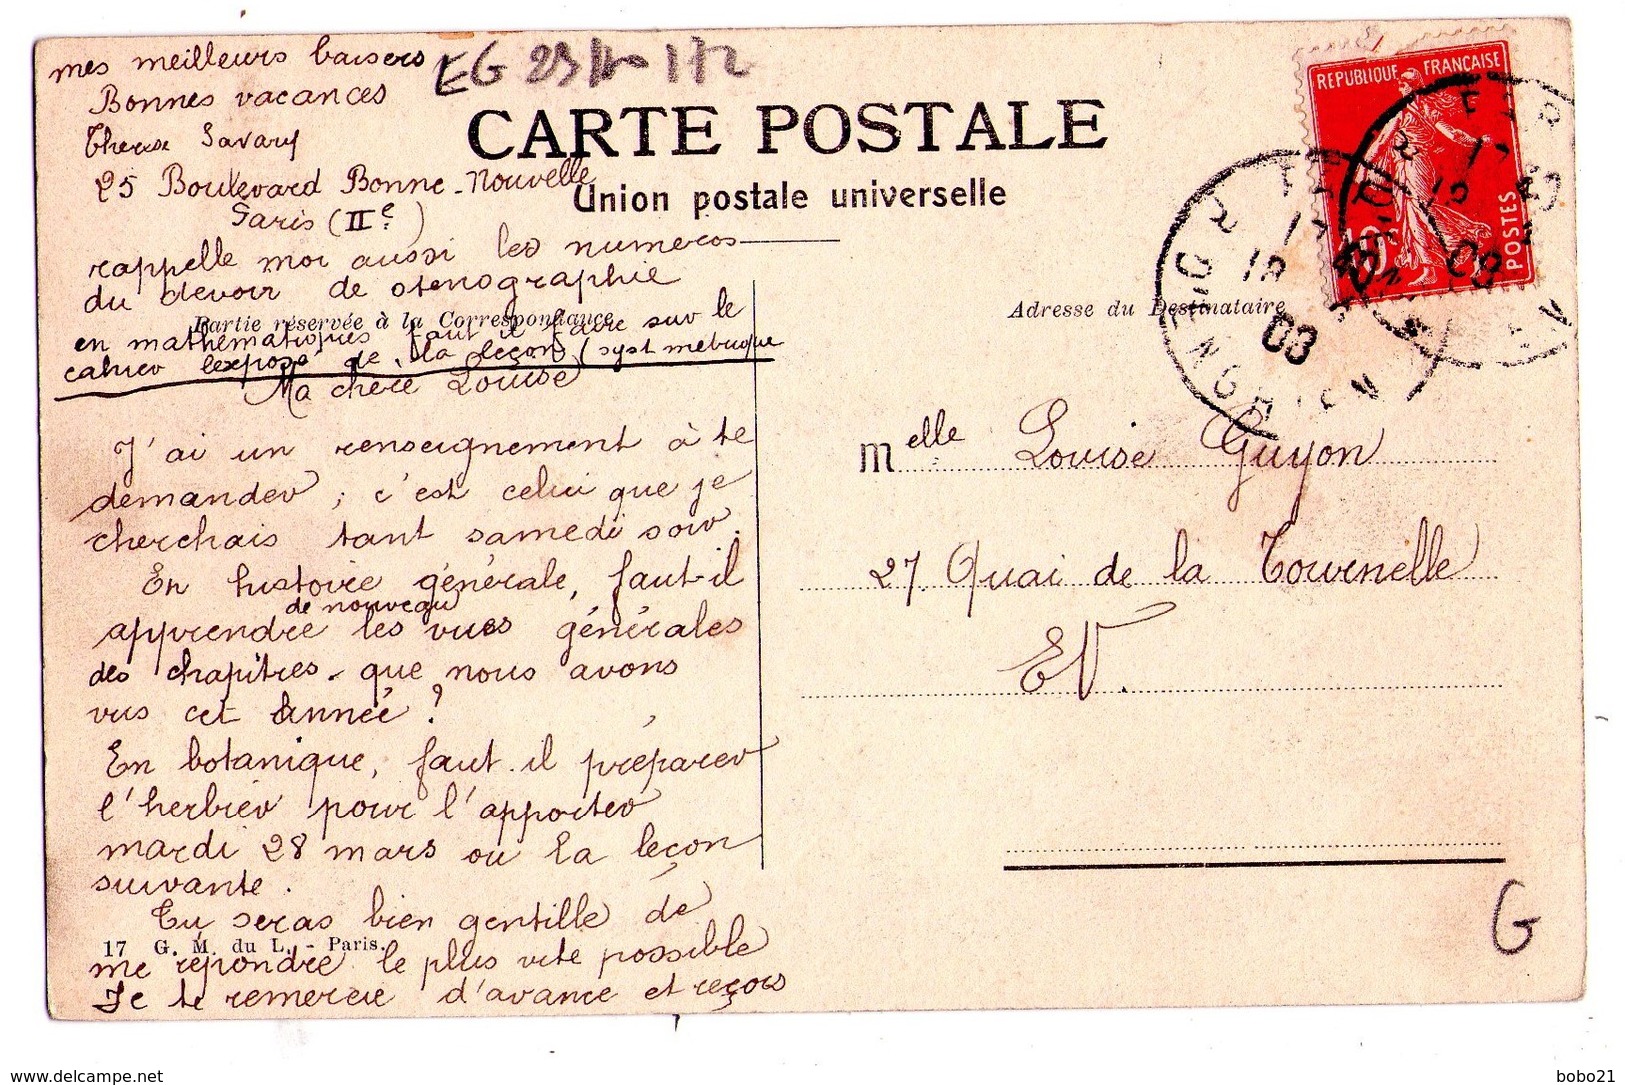 mes meilleurs baisers
Bonnes vacances
Therese Savary
25 Boulevard Bonne-Nouvelle
Paris (IIe)
rappelle moi aussi les numeros
du devoir de stenographie
en mathématiques faut il faire sur le
cahier l'exposé de la leçon (syst metrique
EG 23
CARTE POSTALE
Union postale universelle
REPUBLIQUE FRANÇAISE
POSTES
10
08
Partie réservée à la Correspondance
Adresse du Destinataire
Ma chère Louise
J'ai un renseignement à te
demander, c'est celui que je
cherchais tant samedi soir.
En histoire générale, faut-il
de nouveau
apprendre les vues générales
des chapitres que nous avons
vus cet année?
En botanique, faut-il préparer
l'herbier pour l'apporter
mardi 28 mars ou la leçon
suivante.
Tu seras bien gentille de
17 G. M. du L. - Paris.
me répondre le plus vite possible
Je te remercie d'avance et reçois
Melle Louise Guyon
27 Quai de la Tournelle
EV.
G
delcampe.net
bobo21